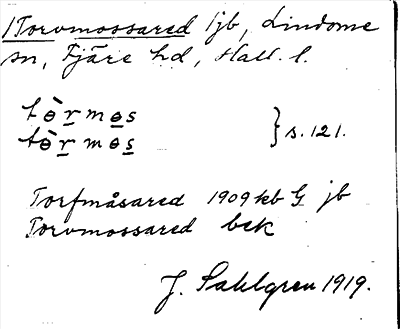 1 Torvmossared ljb, Lindome
sn, Fjäre hd, Hall. l.
tɵ̀r̲mɵ̲s
tɵ̀r̲mɵs̲ } s. 121.
Torfmåsared 1909 kb G jb
Torvmossared bek
J. Sahlgren 1919.